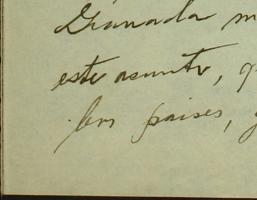 Granada m
este asunto, q
los paises, y